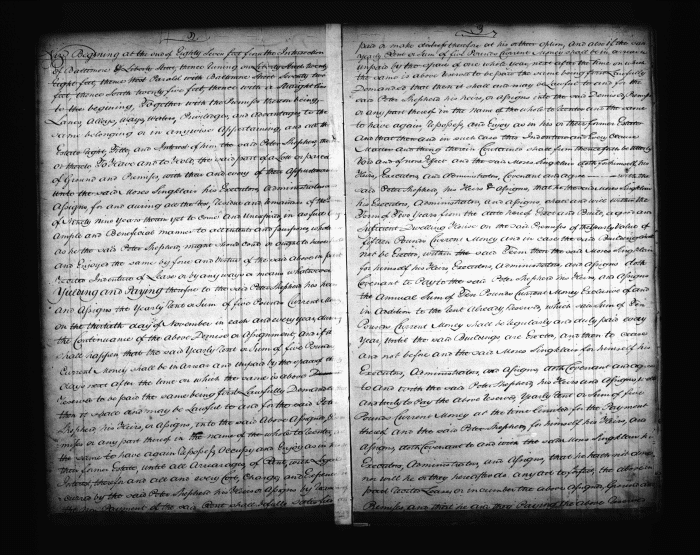 2
Begining at the end of Eighty Seven feet from the Intersection
of Baltimore & Liberty Street, thence Running on Liberty Street Twenty
Eight feet, thence West Paralel with Baltimore Street Seventy two
feet, thence North twenty five feet, thence with a straight line
to the begining, Together with the Premisses thereon being,
Lanes, Alleys, Ways, Waters, Privileges, and advantages to the
same belonging or in anywise Appertaining, and all the
Estate Right, Title, and Interest of him the said Peter Shepherd, the
or thereto To Have and to Hold, the said part of a Lot or parcel
of Ground and Premises, with their and every of their Appurtenances
unto the said Moses Singleain his Executors, Administrators
Assigns, for and during all the Rest, Residue and Remainder of the
of Ninety Nine Years thereon yet to Come and Unexpired, in as full
Ample and Beneficial manner to all intents and purposes, whatso
as he the said Peter Shepherd, might have Could or ought to have
and Enjoyed the same by force and Virtue of the said above in part
Recited Indenture of Lease or by any ways or means whatsoever
Yielding and Paying therefor to the said Peter Shepherd his heirs
and Assigns the Yearly Rent or Sum of five Pounds Current Money
on the thirtieth day of November in each and every year, during
the Continuance of the above Demise or Assignment, and if it
shall happen that the said Yearly Rent or Sum of five Pounds
Current Money Shall be in Arrear and Unpaid by the space of
days next after the time on which the same is above
Reserved to be paid the same being first Lawfully Demanded
then it shall and may be Lawful to and for the said Peter
Shepherd his Heirs, or Assigns, into the said Above Assigned
Premises or any part thereof in the name of the whole to Reenter,
the same to have again Repossess, Occupy and Enjoy as in
their former Estate, until all Arrearages of Rent, with Legal
Interest, thereon and all and every Cost, Charges and Expences
incured by the said Peter Shepherd his Heirs or Assigns by
the Non Payment of the said Rent shall be fully Satisfied
3
paid or make distress therefor, at his or their option, and also if the said
Yearly Rent or Sum of five Pounds Current Money shall be in arrear &
unpaid by the space of one whole year, next after the time on which
the same is above Reserved to be paid the same being first Lawfully
Demanded that then it shall and may be Lawful to and for the
said Peter Shepherd his heirs, or Assigns into the said Demised Premises
or any part thereof in the name of the whole to Reenter and the same
to have again Repossess, and Enjoy as in his or their former Estate
and that then and in such case this Indenture and Every Clause
Matter and thing therein Contained shall from thenceforth be utterly
Void and of none Effect and the said Moses Singleain doth for himself, his
Heirs, Executors, and Administrators, Covenant and agree with the
said Peter Shepherd, his Heirs & Assigns, that he the said Moses Singleain
his Executors, Administrators, and Assigns, shall and will within the
Term of Two Years from the date hereof Erect and Build, a good and
Sufficient Dwelling House on the said Premises of the yearly Value of
fifteen Pounds Current Money and in case the said Buildings shall
not be Erected, within the said Term then the said Moses Singleain
for himself his Heirs Executors, Administrators and Assigns doth
Covenant to Pay to the said Peter Shepherd his Heirs, and Assigns
the Annual Sum of Ten Pounds Current Money Exclusive of and
in addition to the Rent Already Reserved, which said Sum of Ten
Pounds Current Money shall be regularly and duly paid every
Year Until the said Buildings are Erected, and then to cease
and not before and the said Moses Singleain for himself his
Executors, Administrators, and Assigns, doth Covenant and agree
to and with the said Peter Shepherd, his Heirs and Assigns
and truly to Pay the Above Reserved Yearly Rent or Sum of five
Pounds Current Money at the time limited for the Payment
thereof and the said Peter Shepherd, for himself his Heirs, and
Assigns, doth Covenant to and with the said Moses Singleain his
Executors, Administrators, and Assigns, that he hath not done
nor will he or they hereafter do any act to Effect, the above in
part recited Lease, or incumber the above Assigned, Ground and
Premises, and that he and they Paying the above